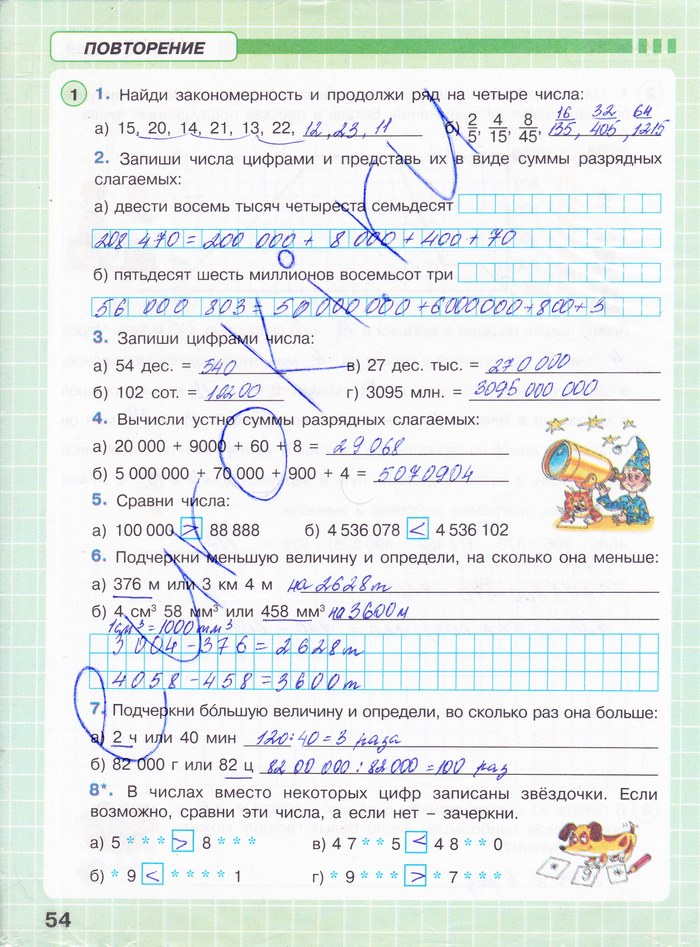 ПОВТОРЕНИЕ
1 1. Найди закономерность и продолжи ряд на четыре числа:
а) 15, 20, 14, 21, 13, 22, 12, 23, 11 б) 2/5, 4/15, 8/45, 16/135, 32/405, 64/1215
2. Запиши числа цифрами и представь их в виде суммы разрядных
слагаемых:
а) двести восемь тысяч четыреста семьдесят
208 470 = 200 000 + 8 000 + 400 + 70
б) пятьдесят шесть миллионов восемьсот три
56 000 803 = 50 000 000 + 6000000 + 800 + 3
3. Запиши цифрами числа:
а) 54 дес. = 540 в) 27 дес. тыс. = 270 000
б) 102 сот. = 10200 г) 3095 млн. = 3095 000 000
4. Вычисли устно суммы разрядных слагаемых:
а) 20 000 + 9000 + 60 + 8 = 29 068
б) 5 000 000 + 70 000 + 900 + 4 = 5070904
5. Сравни числа:
а) 100 000 > 88 888 б) 4 536 078 < 4 536 102
6. Подчеркни меньшую величину и определи, на сколько она меньше:
а) 376 м или 3 км 4 м на 2628 м
б) 4 см³ 58 мм³ или 458 мм³ на 3600 м
1 см³ = 1000 мм³
3 004 - 376 = 2 628 м
4058 - 458 = 3600 м
7. Подчеркни бо́льшую величину и определи, во сколько раз она больше:
а) 2 ч или 40 мин 120 : 40 = 3 раза
б) 82 000 г или 82 ц 82 00 000 : 82 000 = 100 раз
8*. В числах вместо некоторых цифр записаны звёздочки. Если
возможно, сравни эти числа, а если нет – зачеркни.
а) 5 * * * > 8 * * * в) 4 7 * * 5 < 4 8 * * 0
б) * 9 < * * * * 1 г) * 9 * * * > * 7 * * *
54
yrokik.ru